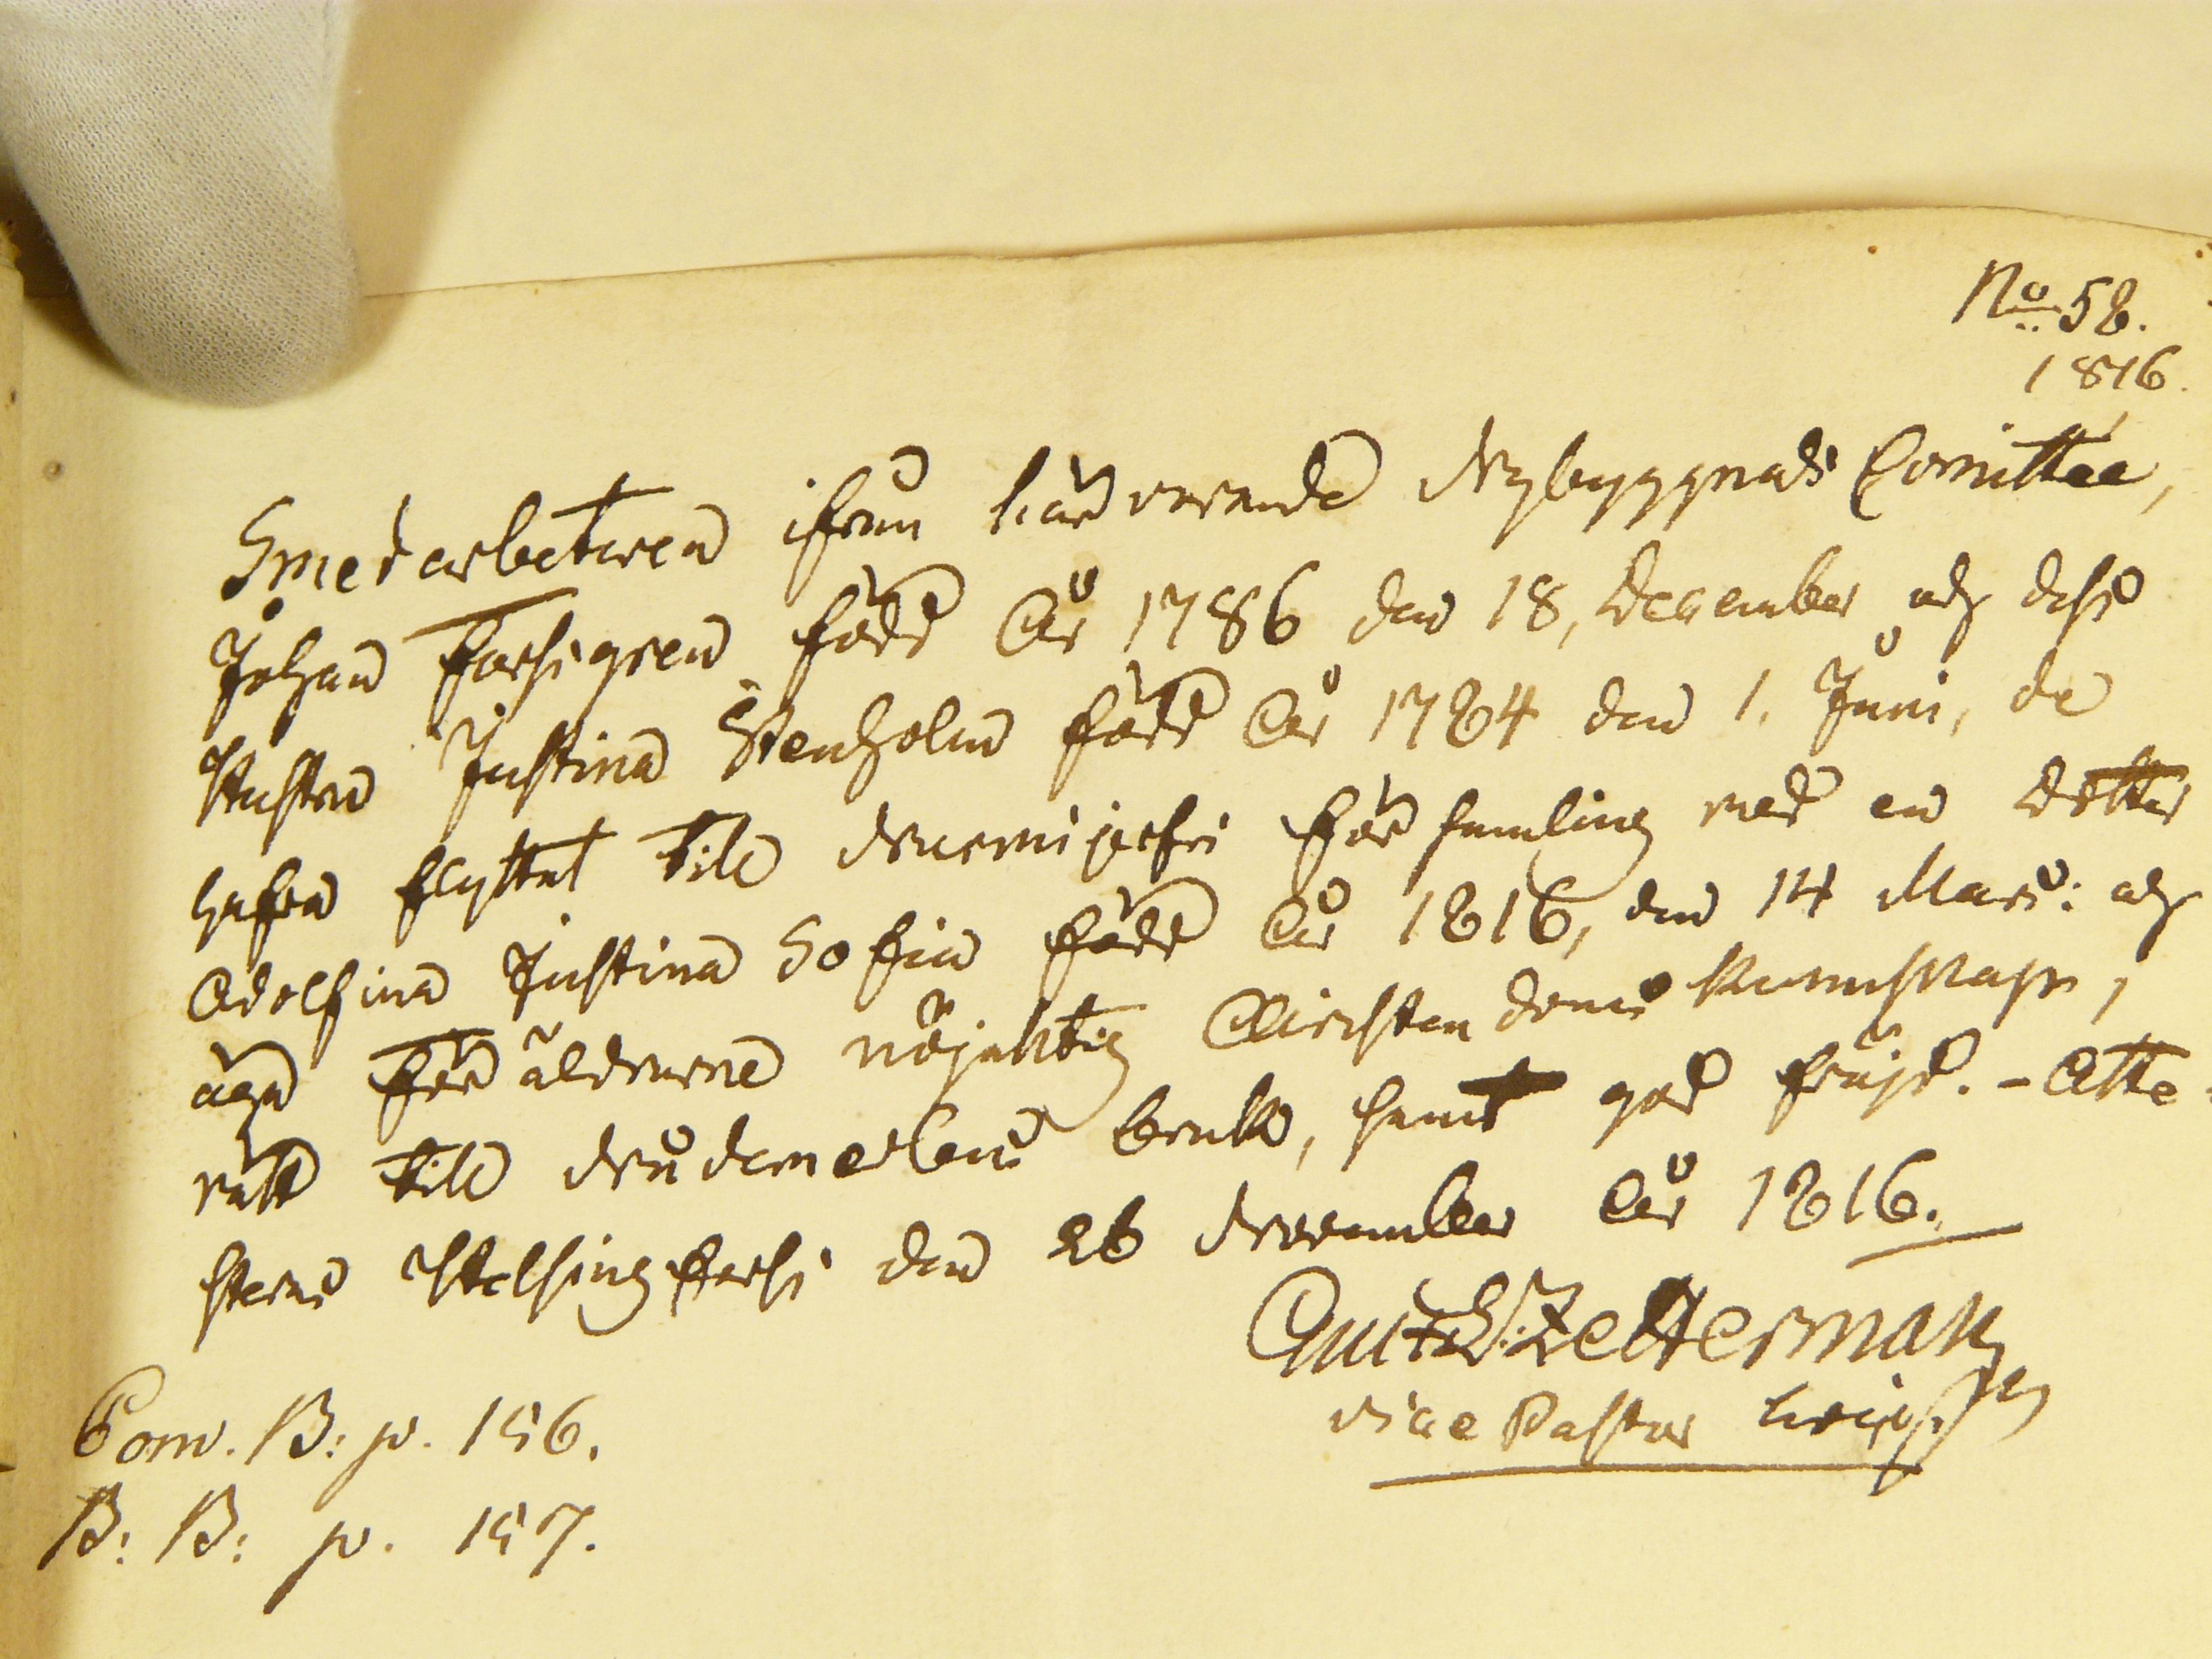 No 58.
1816.
Smedarbetaren ifrån härvarande Nybyggnads Comittée,
Johan Forssgren född År 1786 den 18, December och dess
Hustru Justina Stenholm född År 1784 den 1. Juni, de
hafva flyttat till Nurmijerfvi församling med en Dotter
Adolfina Justina Sofia född År 1816, den 14 Mars: och
äga föräldrarne nöjaktig Christendoms kunnskap,
rätt till Nådemedlens bruk, samt god fräjd. - Atte-
steras Helsingfors den 26 November År 1816.
Zetterman
vice Pastor
Com. B: p. 156.
B: B: p. 157.